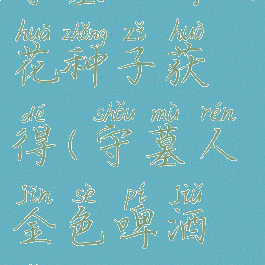 huā zhǒng zǐ huò
花种子获
dé shǒu mù rén
得(守墓人
jīn sè pí jiǔ
金色啤酒